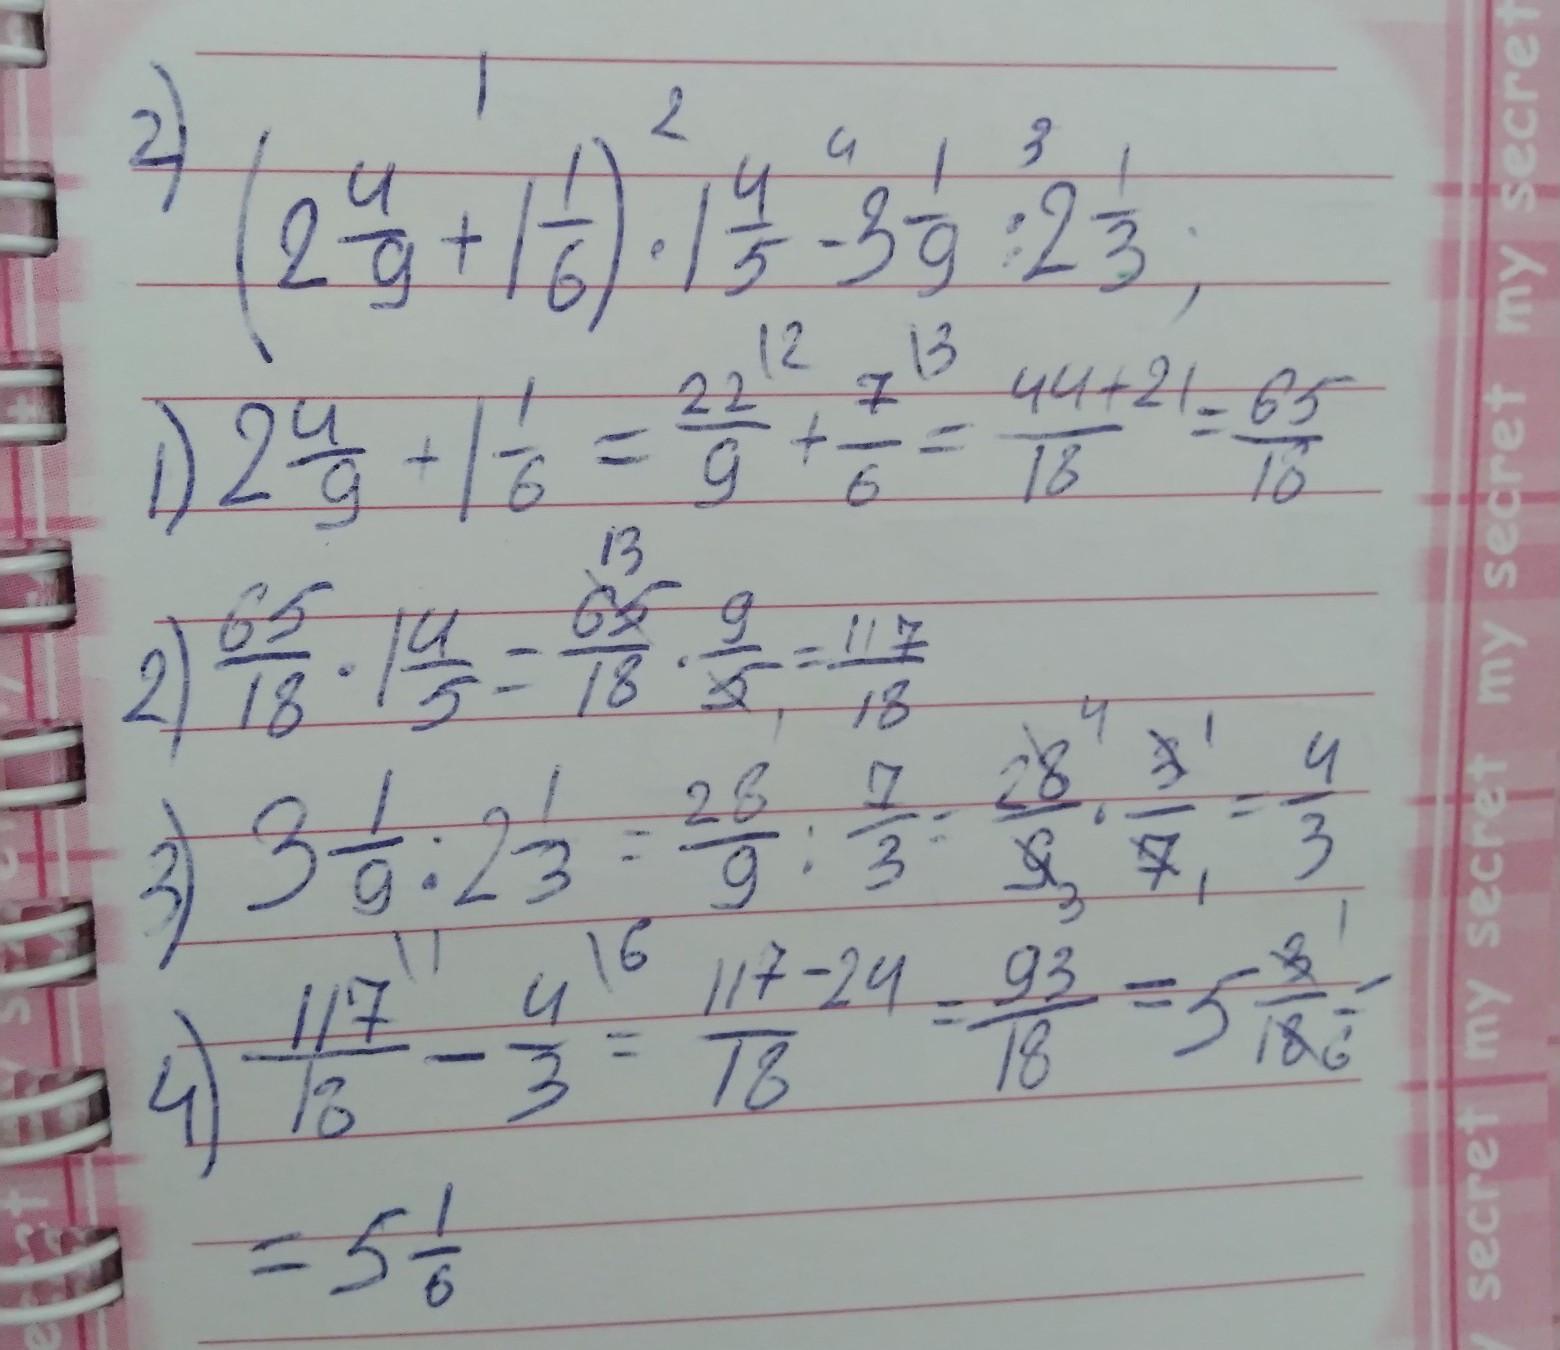 2) (2 4/9 + 1 1/6) · 1 4/5 - 3 1/9 : 2 1/3 ;
1 2 4 3
1) 2 4/9 + 1 1/6 = 22/9 \2 + 7/6 \3 = 44+21/18 = 65/18
2) 65/18 · 1 4/5 = 65 13/18 · 9/5 1 = 117/18
3) 3 1/9 : 2 1/3 = 28/9 : 7/3 = 28 4/9 3 · 3 1/7 1 = 4/3
4) 117/18 \1 - 4/3 \6 = 117-24/18 = 93/18 = 5 3 1/18 6 =
= 5 1/6
my secret my secret my secret my secret